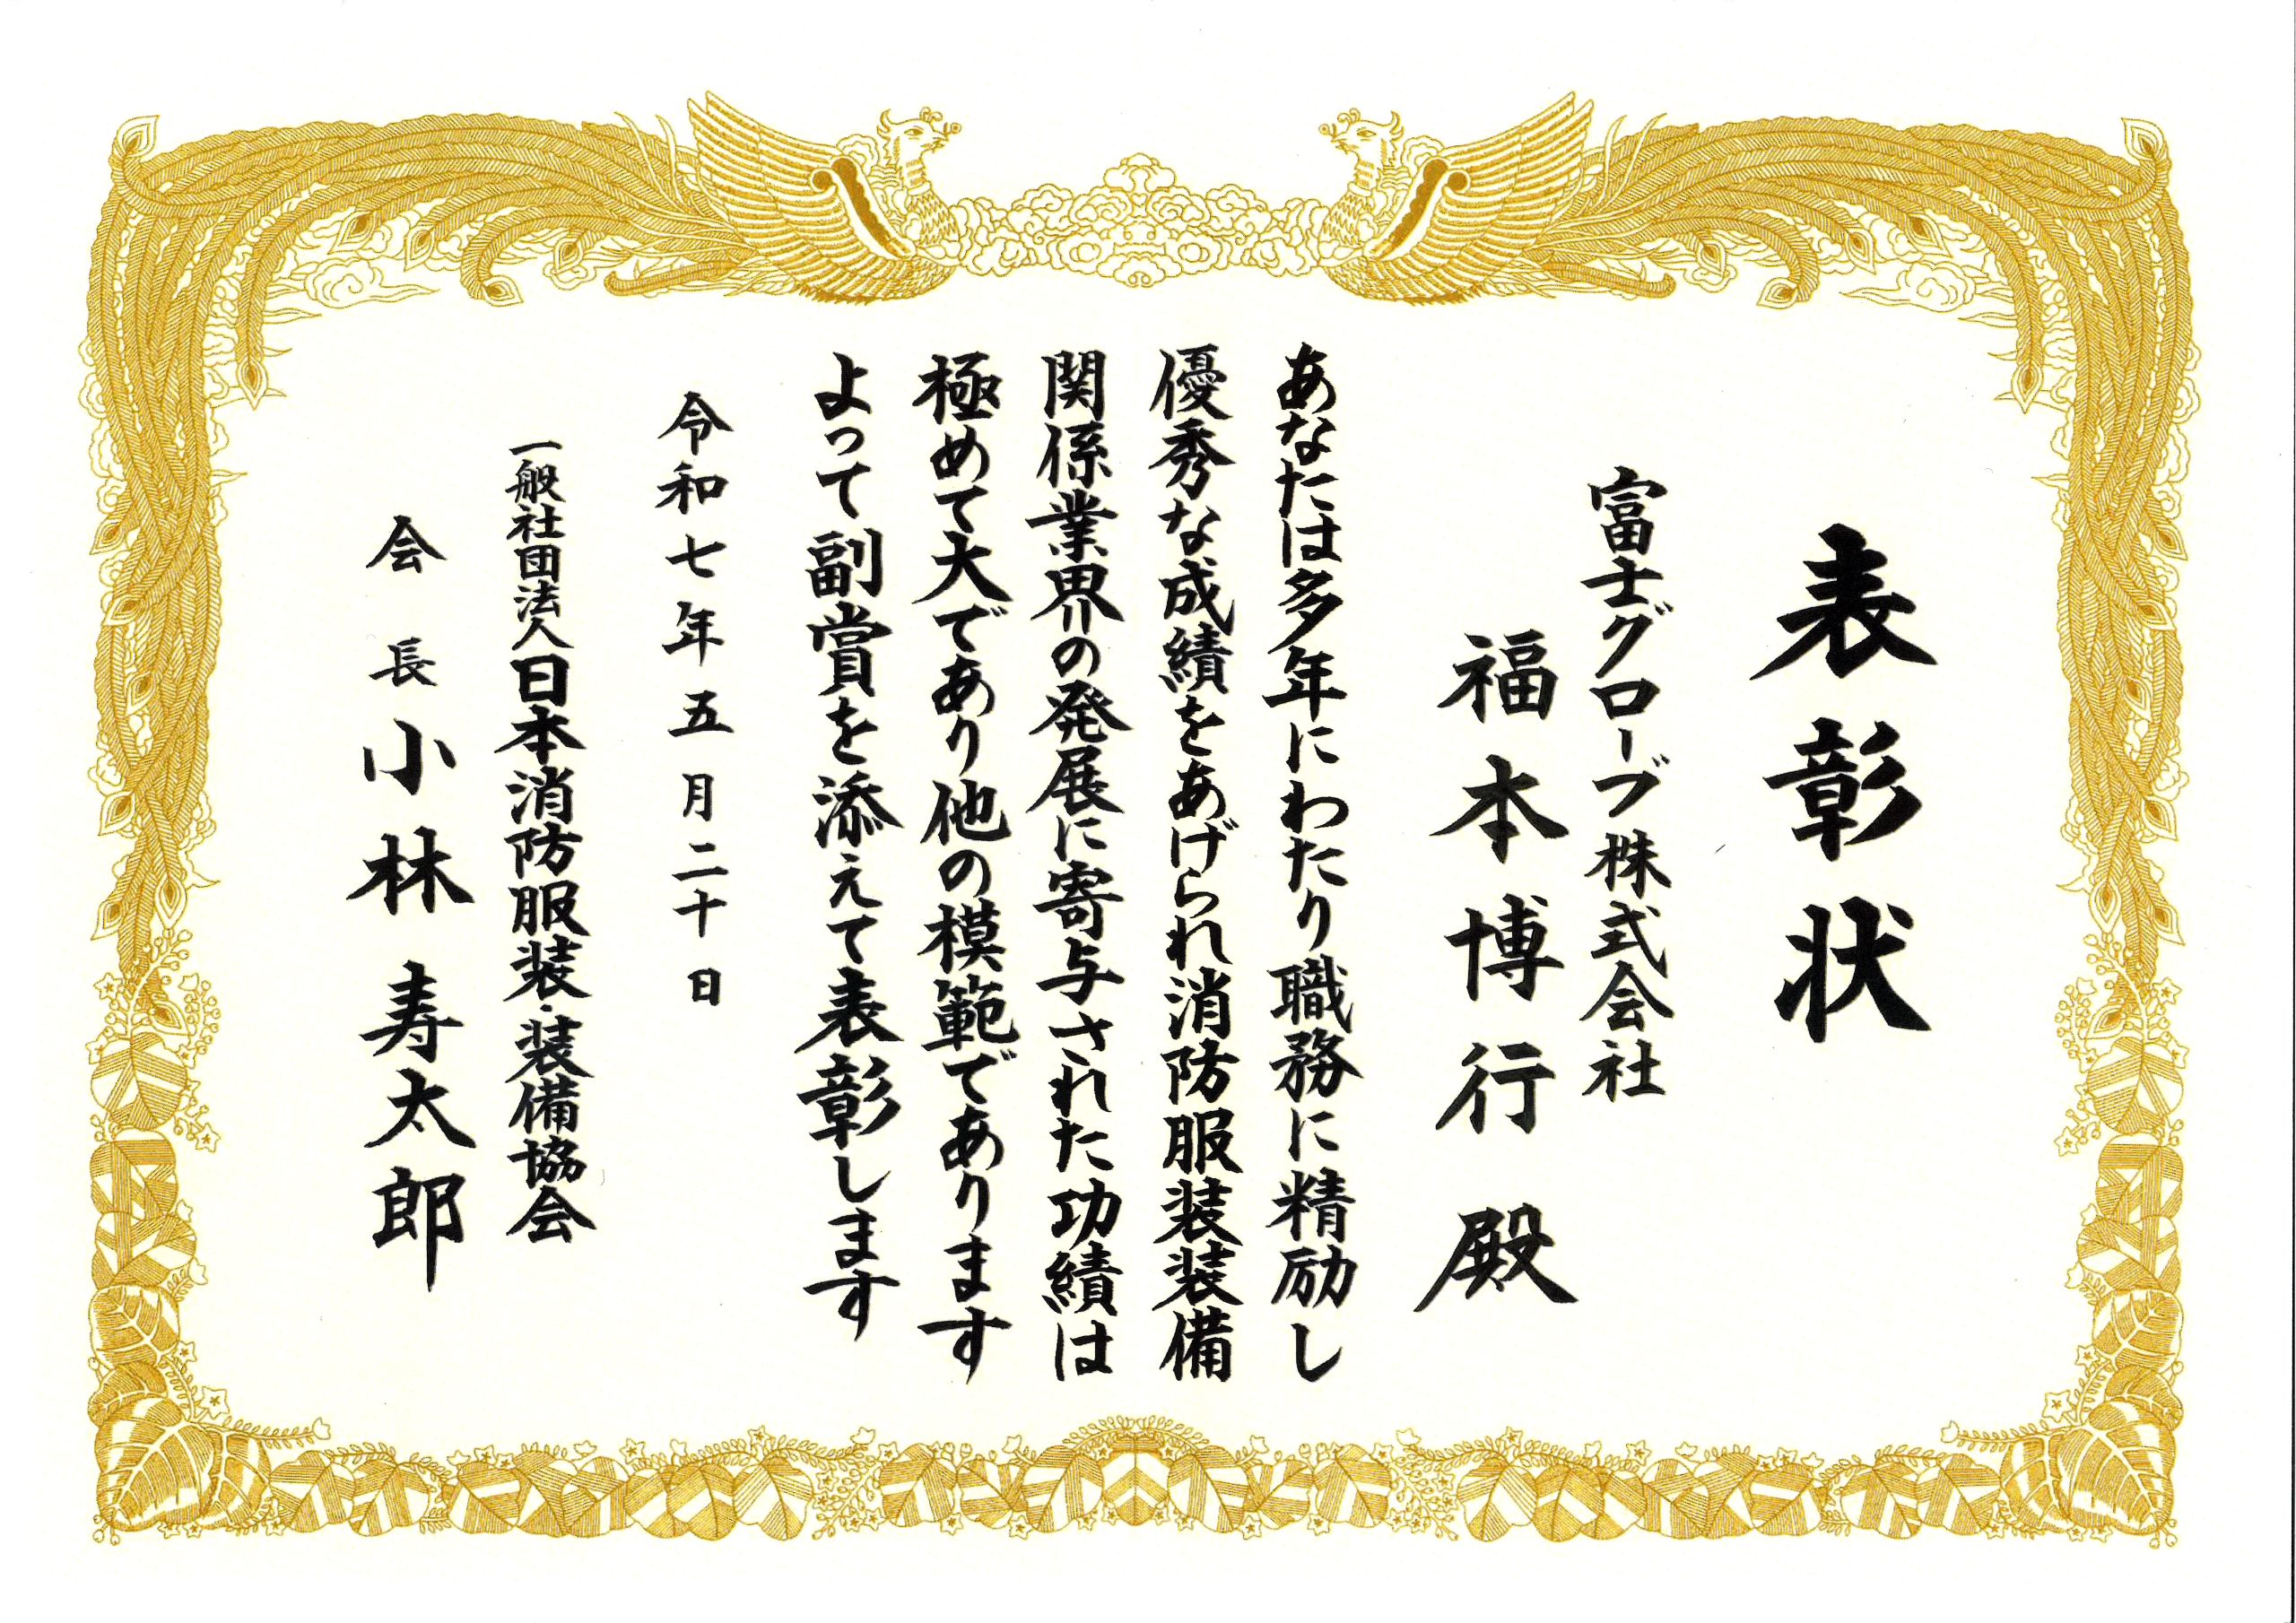 表彰状
富士グローブ株式会社
福本博行 殿
あなたは多年にわたり職務に精励し
優秀な成績をあげられ消防服装装備
関係業界の発展に寄与された功績は
極めて大であり他の模範であります
よって副賞を添えて表彰します
令和七年五月二十日
一般社団法人日本消防服装・装備協会
会長 小林寿太郎